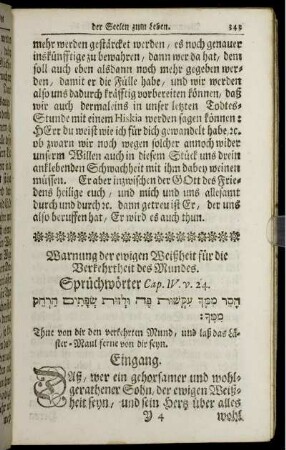 der Seelen zum Leben. 343
mehr werden gestärcket werden, es noch genauer
inskünfftige zu bewahren, dann wer da hat, dem
soll auch eben alsdann noch mehr gegeben wer-
den, damit er die Fülle habe, und wir werden
also uns dadurch kräfftig vorbereiten können, daß
wir auch dermaleins in unser letzten Todtes-
Stunde mit einem Hiskia werden sagen können:
HErr du weist wie ich für dich gewandelt habe. ꝛc.
ob zwarn wir noch wegen solcher annoch wider
unserm Willen auch in diesem Stück uns drein
anklebenden Schwachheit mit ihm dabey weinen
müssen. Er aber inzwischen der GOtt des Frie-
dens heilige euch, und mich und uns allesamt
durch und durch ꝛc. dann getreu ist Er, der uns
also beruffen hat, Er wird es auch thun.
Warnung der ewigen Weißheit für die
Verkehrtheit des Mundes.
Sprüchwörter Cap. IV. v. 24.
הָסֵר מִמְּךָ עִקְּשׁוּת פֶּה וּלְזוּת שְׂפָתַיִם הַרְחֵק
מִמֶּךָּ׃
Thue von dir den verkehrten Mund, und laß das Lä-
ster-Maul ferne von dir seyn.
Eingang.
Daß, wer ein gehorsamer und wohl-
gerathener Sohn, der ewigen Weiß-
heit seyn, und sein Hertz über alles
Y 4 wohl